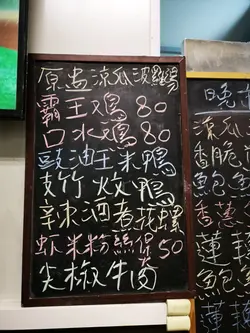 原盅涼瓜波蘿雞湯
霸王鷄80
口水鷄80
豉油王米鴨
支竹炆鴨
辛辣酒煮花螺
虾米粉絲保50
尖椒牛
晚
涼瓜
香脆
鮑魚
香蔥
蓮
鮑
蓮